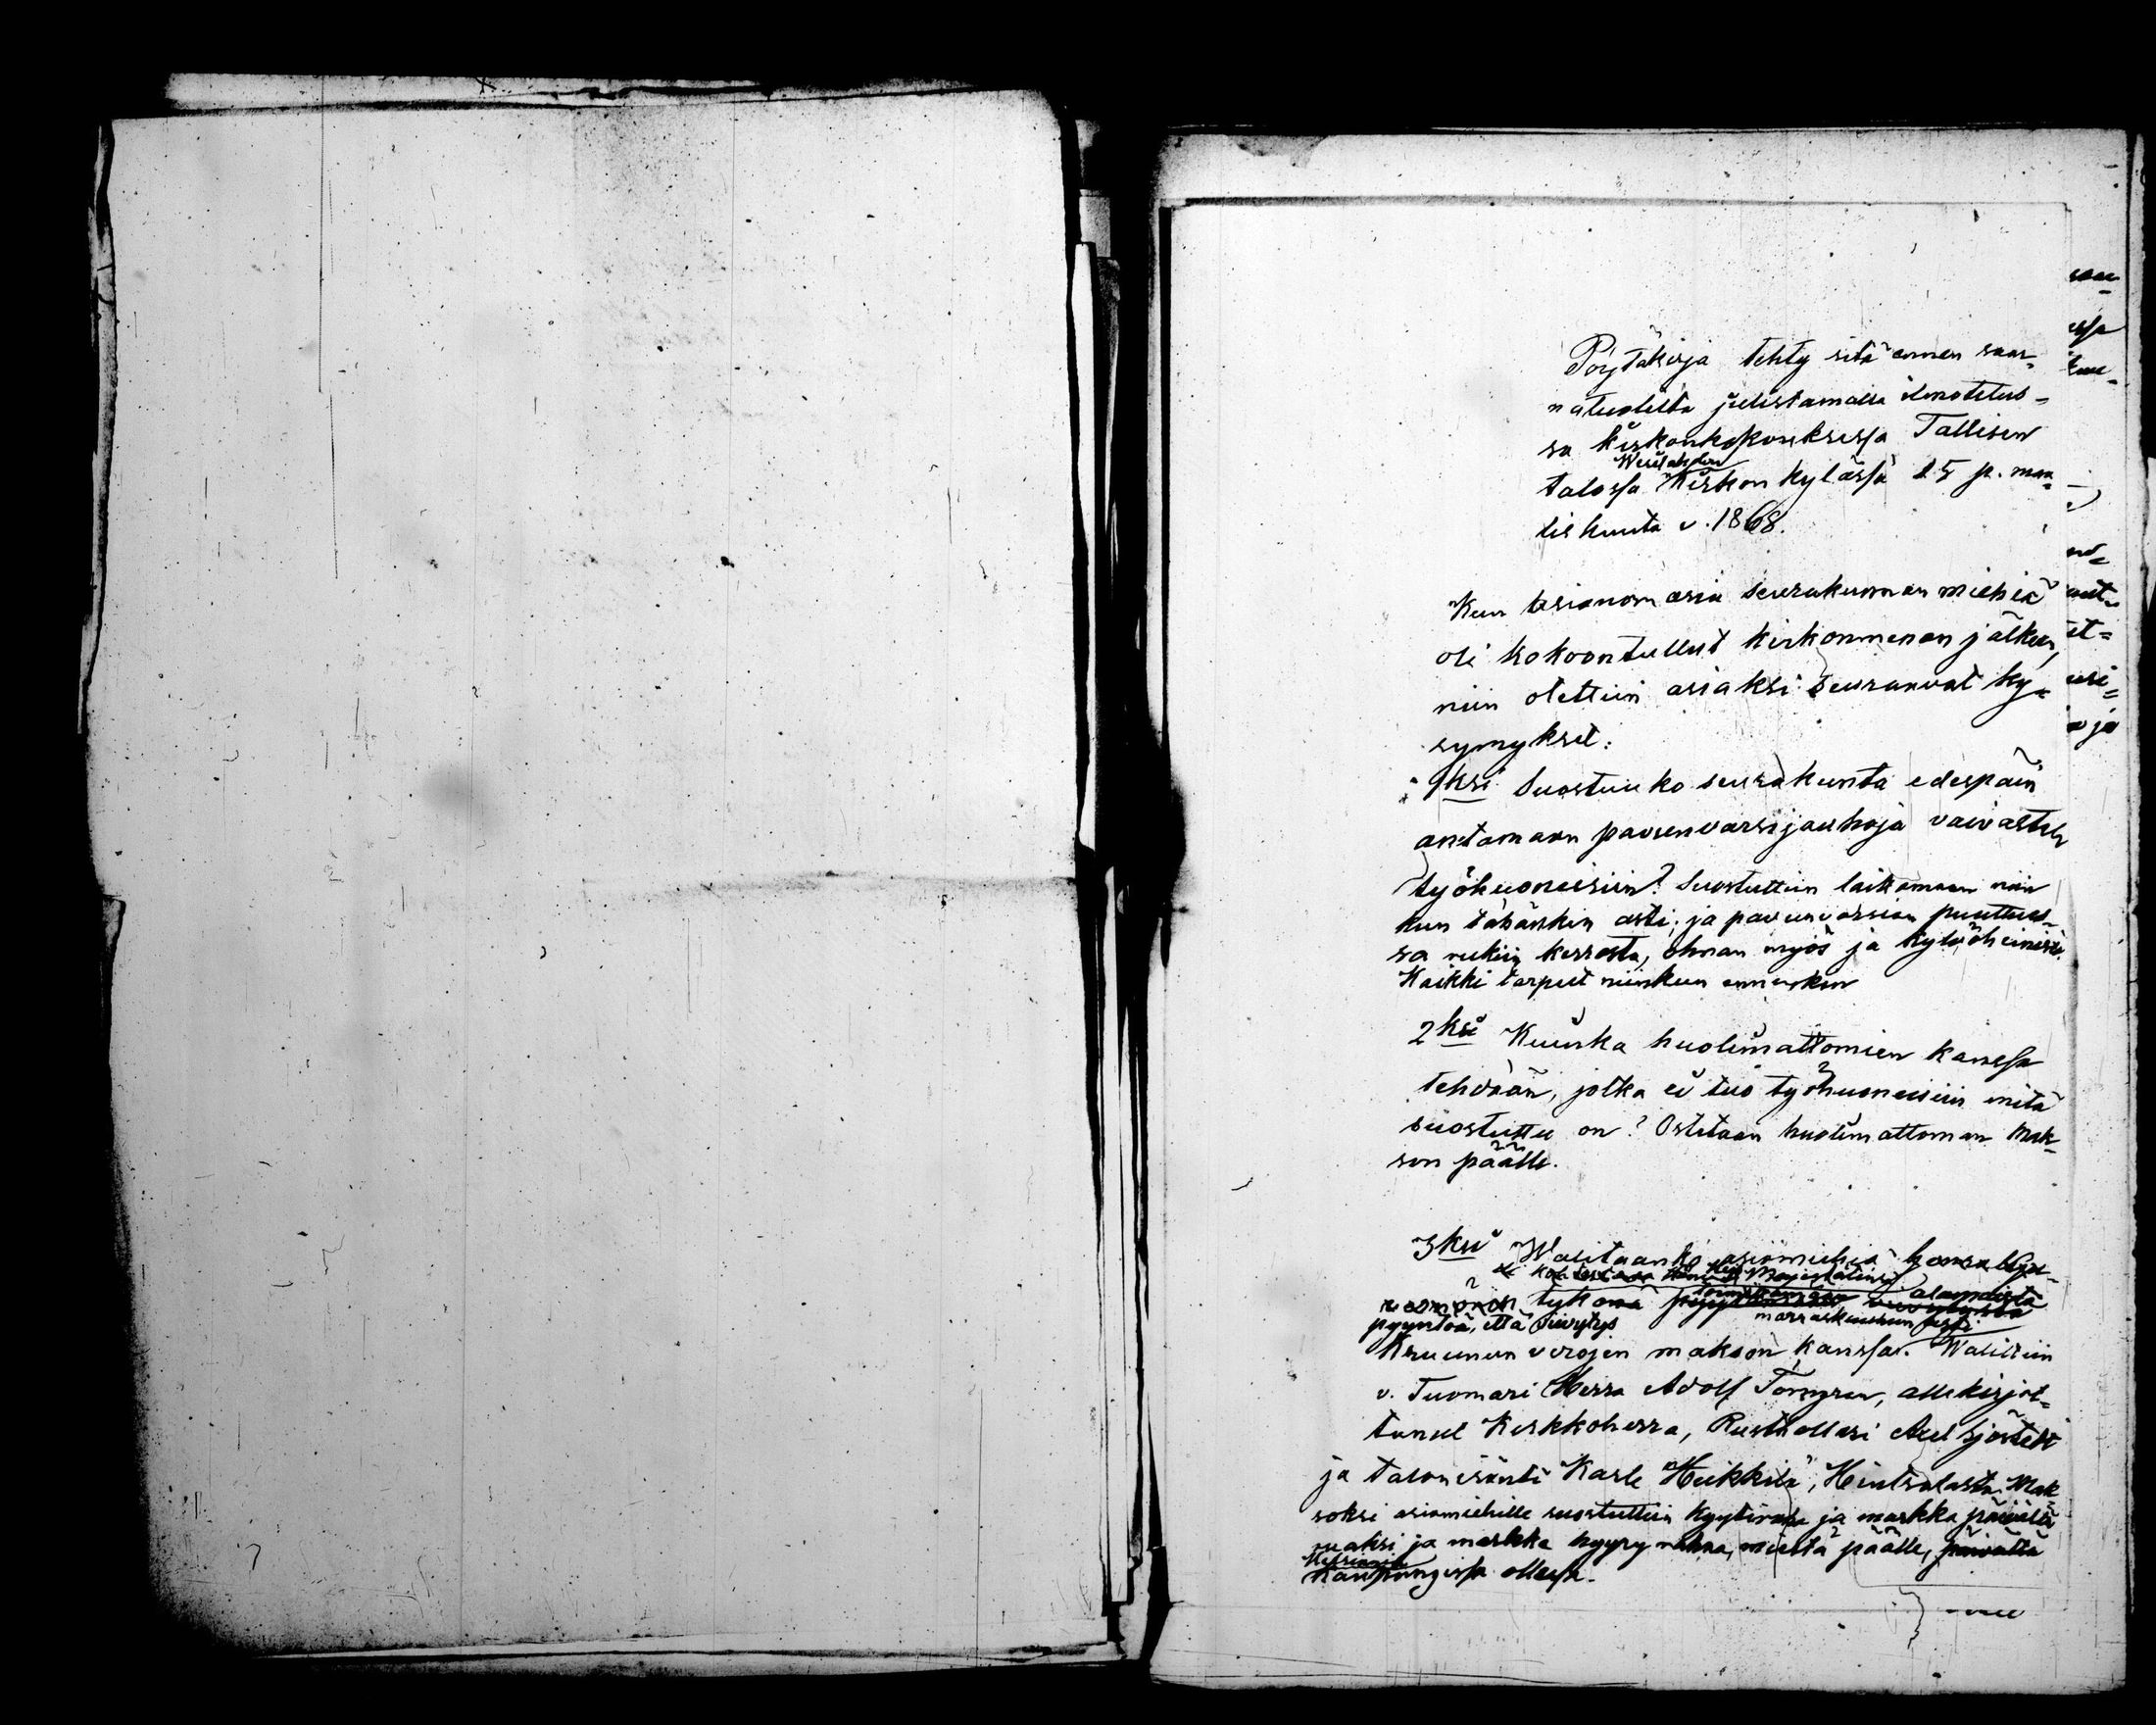 Pöytäkirja tehty sitä ennen saar-
natuolilta julistamalla ilmotetus-
sa kirkonkokouksessa Tallisen
Wesilahden
talossa Kirkon kylässä 15 p. maa-
lis kuuta v. 1868.
Kun asianomasia seurakunnan miehiä
oli kokoontullut kirkonmenon jälkeen,
niin otettiin asiaksi seuraavat ky-
symykset:
1ksi Suostuuko seurakunta edespäin
antamaan pavunvarsijauhoja vaivasten
työhuoneisiin? Suostuttiin laittamaan niin
kun tähänkin asti; ja pavunvarsien puuttues-
sa rukiin kerrasta, ohran myös ja kylvöheinistä.
Kaikki torput niinkuin ennenkin
2ksi Kuinka huolimattomien kanssa
tehdään, jotka ei tuo työhuoneisiin mitä
suostuttu on? Ostetaan huolimattoman mak-
son päälle.
3ksi Walitaanko asiamiehiä
Keis. Majestätinsä
tykönä alammaista
pyyntöä, että viivytys marraskuuhun asti
Kruunun verojen makson kanssa. Walittiin
v. Tuomari Herra Adolf Törngren, allekirjot-
tanut Kirkkoherra, Rusthollari Axel Sjöstedt
ja talonisäntä Karle Heikkilä, Hintsalasta. Mak-
soksi asiamiehille suostuttiin kyytiraha ja markka päivältä
ruaksi ja markka hyyry rahaa, mieltä päälle, päivältä
Helsingin
kaupungissa ollessa.